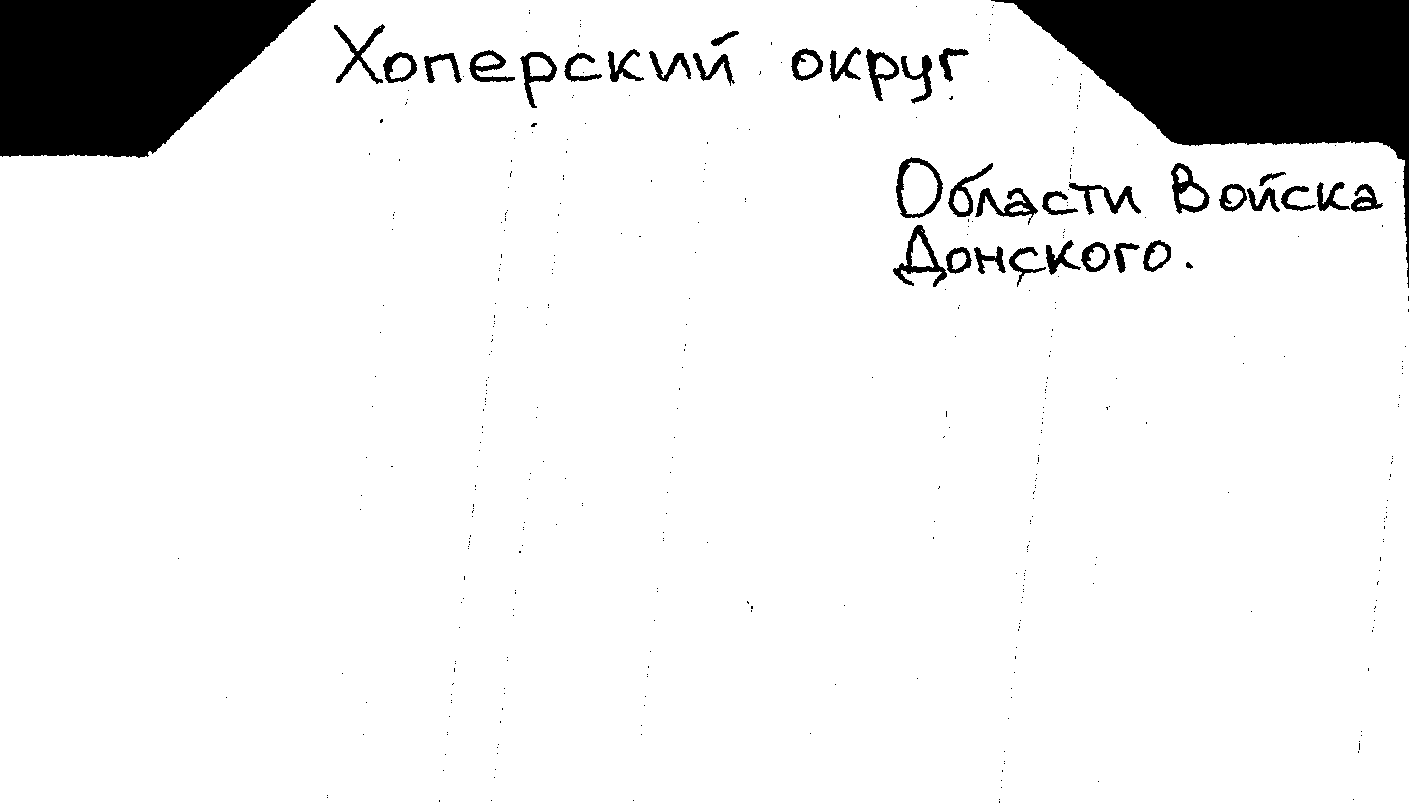 Хоперский округ
Области Войска
Донского.